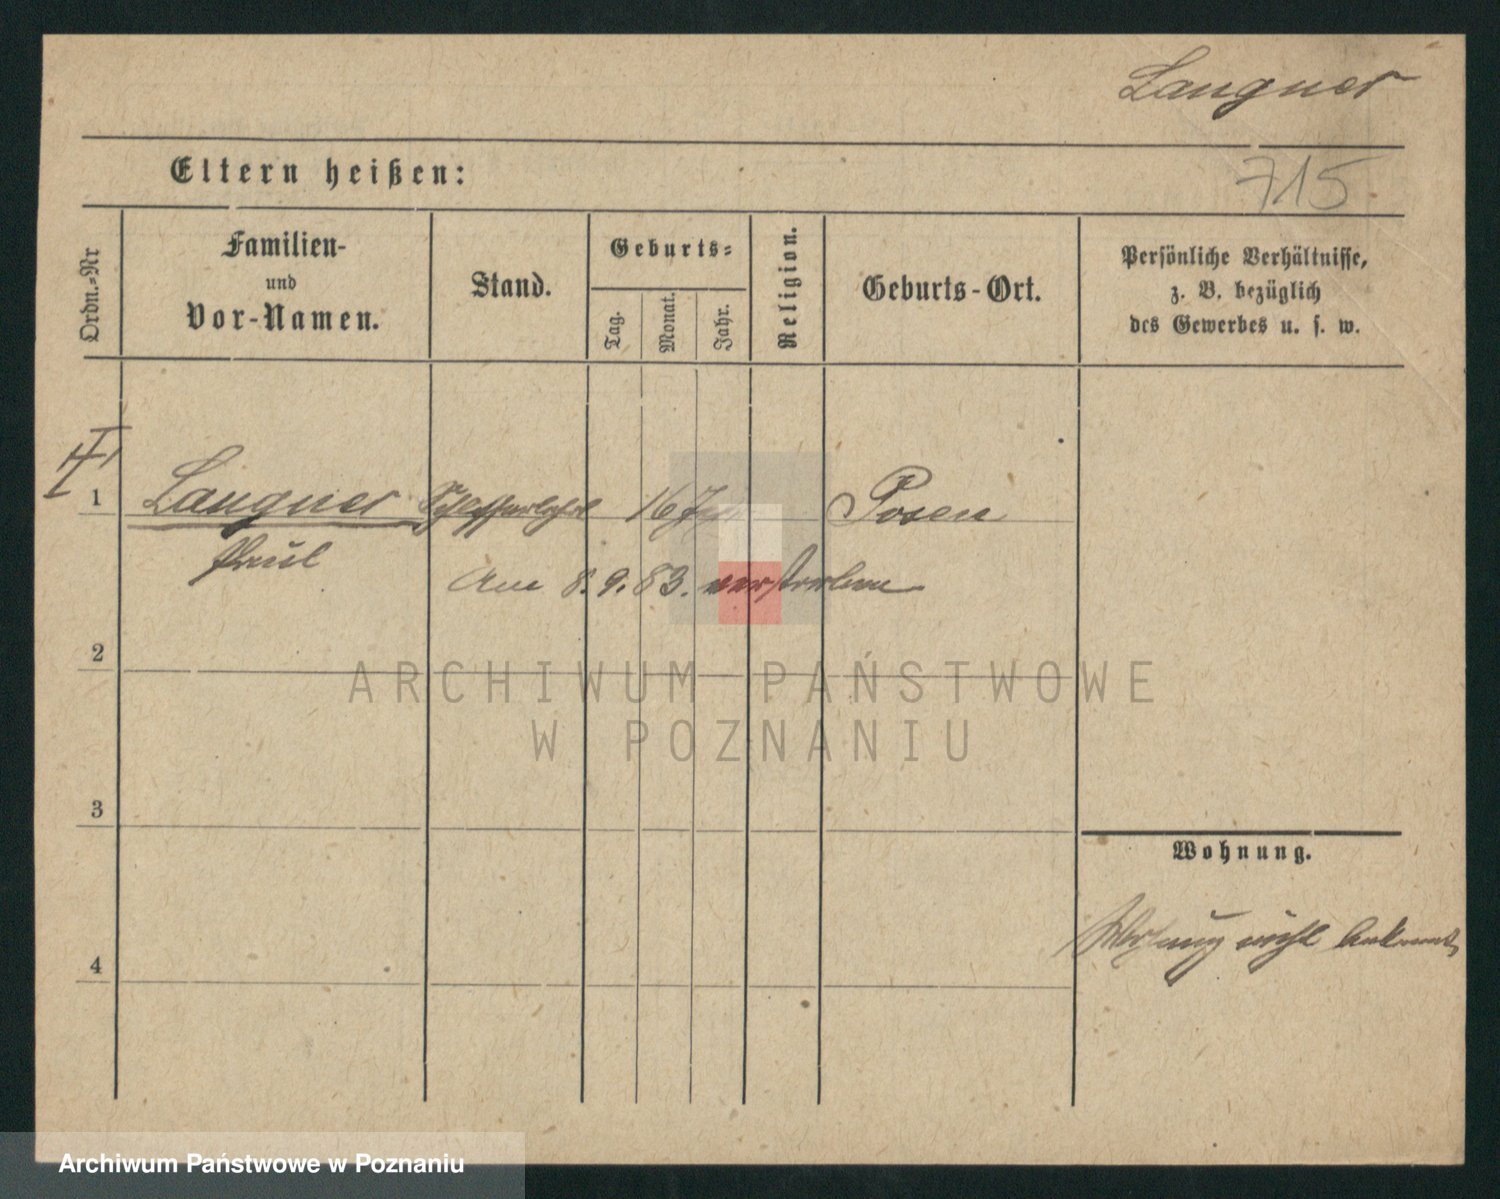 Langner
Eltern heißen:
715
Ordn.-Nr
Familien-
und
Vor-Namen.
Stand.
Geburts-
Tag.
Monat.
Jahr.
Religion.
Geburts-Ort.
Persönliche Verhältnisse,
z. B. bezüglich
des Gewerbes u. s. w.
1 Langner 16 Posen
Paul
Am 8.9.83. verstorben
2
ARCHIWUM PAŃSTWOWE
W POZNANIU
3
Wohnung.
Wohnung nicht bekannt
4
Archiwum Państwowe w Poznaniu